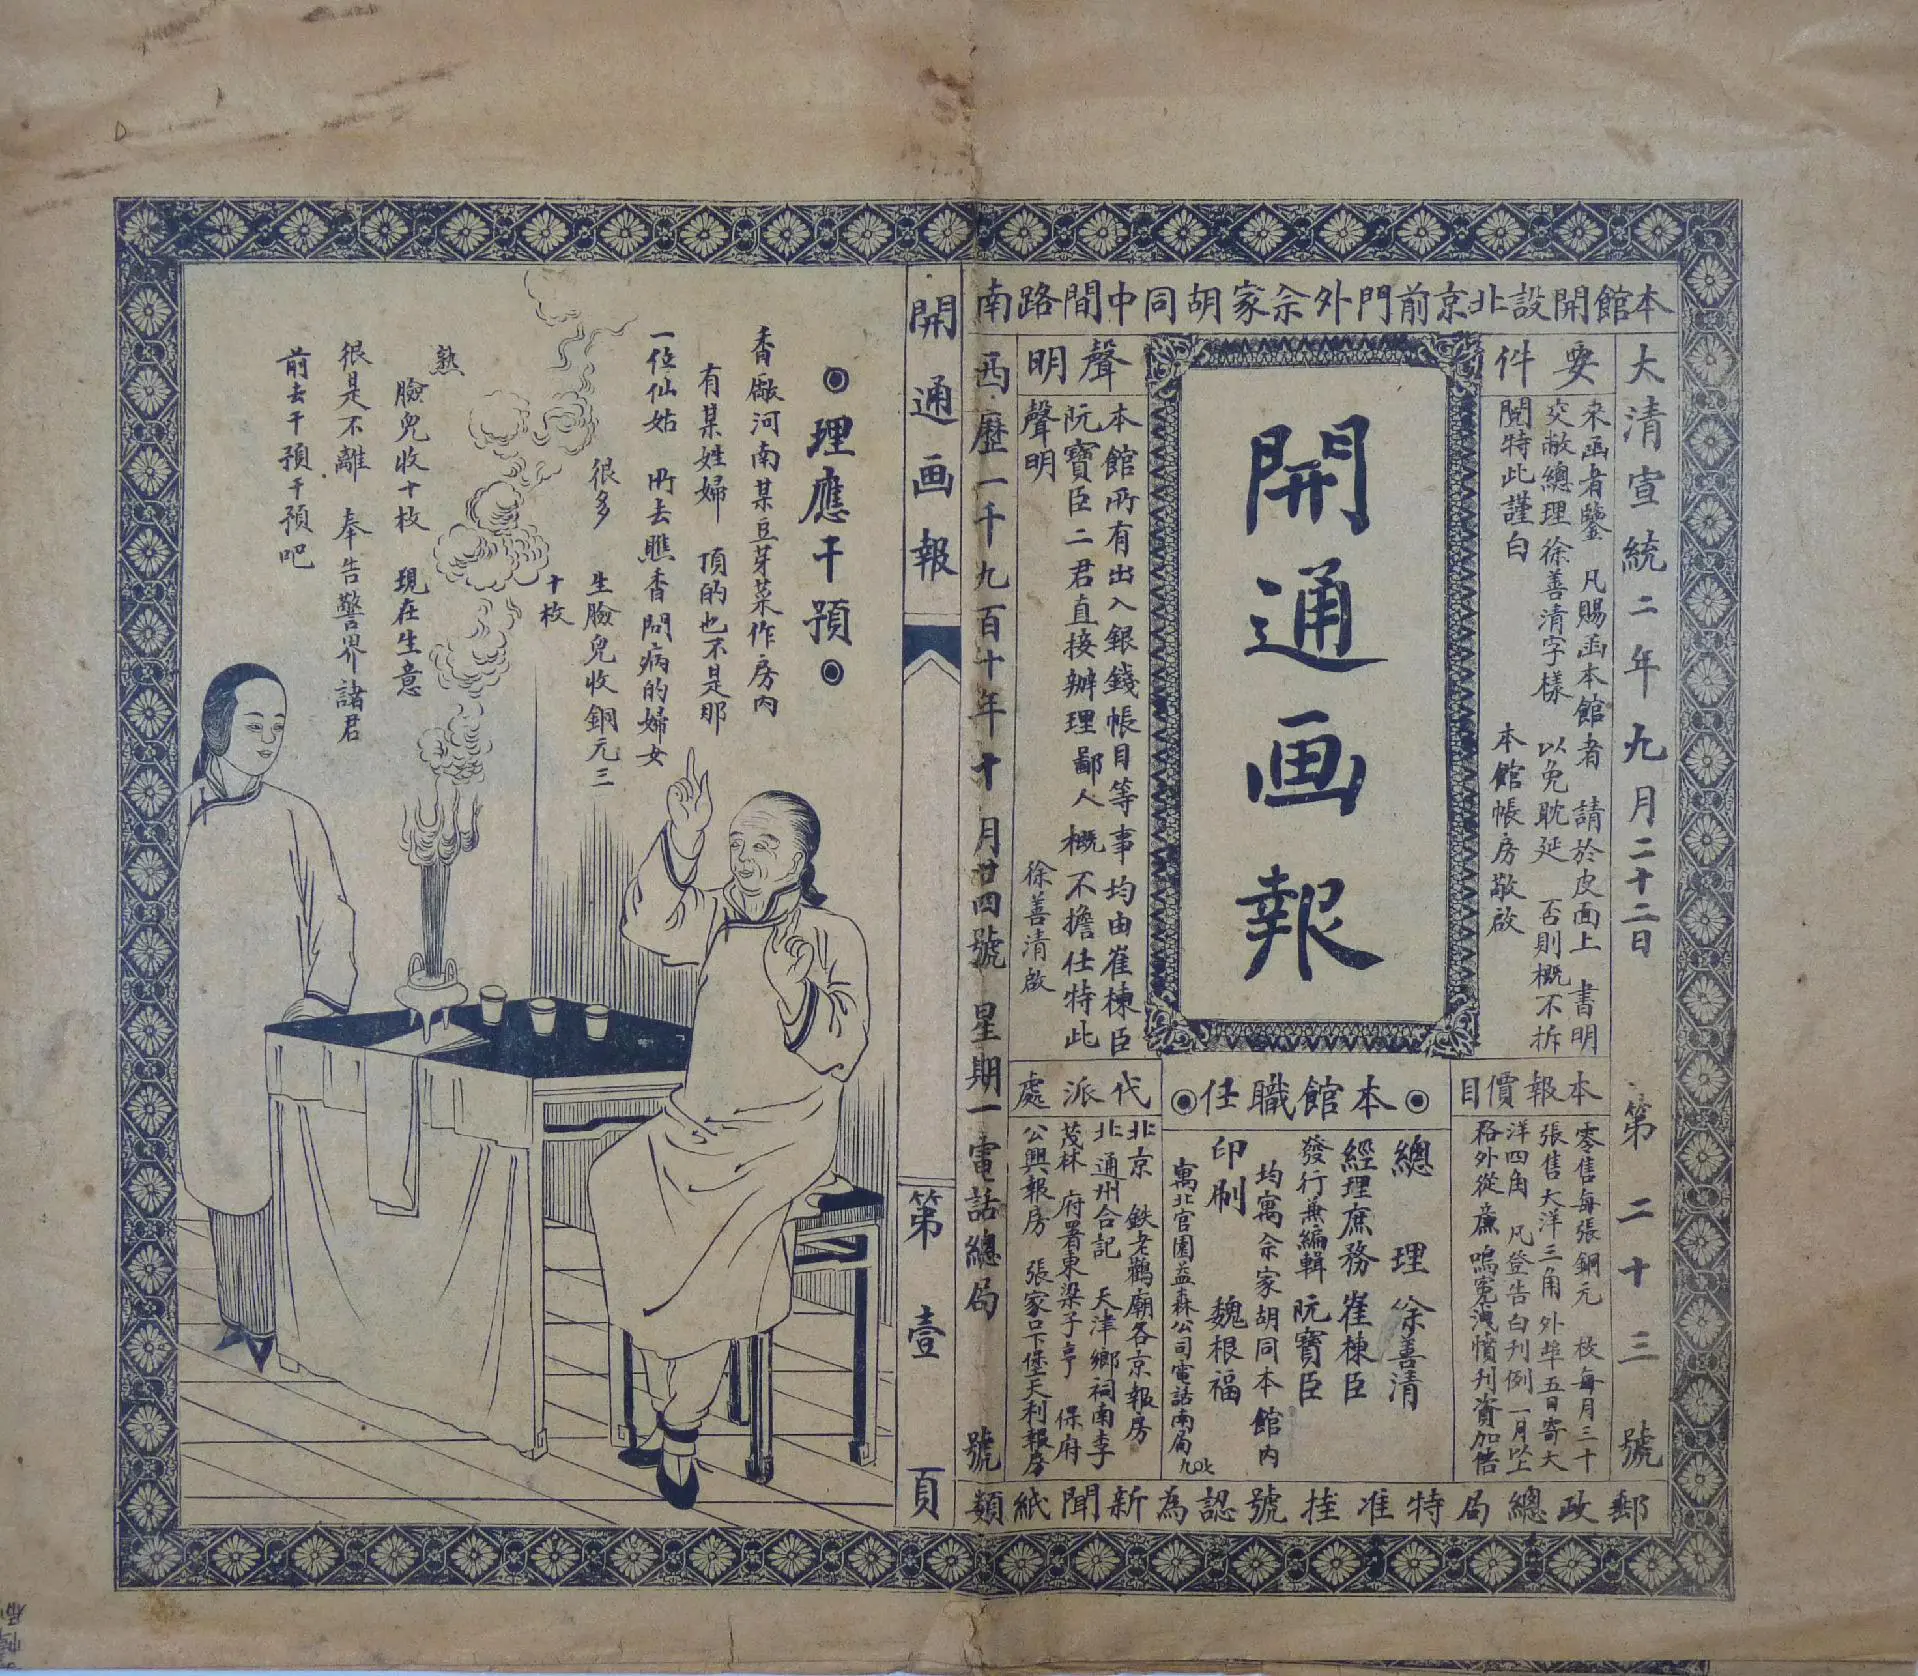 本館開設北京前門外佘家胡同中間路南
大清宣統二年九月二十二日　第二十三號
要件
來函者鑒　凡賜函本館者　請於皮面上　書明
交敝總理徐善清字樣　以免耽延　否則概不拆
閱特此謹白　本館帳房敬啟
開通画報
聲明
本館所有出入銀錢帳目等事均由崔棟臣
阮寶臣二君直接辦理鄙人概不擔任特此
聲明　徐善清啟
本報價目
零售每張銅元　枚每月三十
張售大洋三角　外埠五日寄大
洋四角　凡登告白刊例一月以上
格外從廉　鳴冤洩憤刊資加倍
本館職任
總理　徐善清
經理庶務　崔棟臣
發行兼編輯　阮寶臣
均寓佘家胡同本館內
印刷　魏根福
寓北官園益森公司電話南局
代派處
北京　鉄老鸛廟各京報房
北通州合記　天津鄉祠南李
茂林　府署東梁子亨　保府
公興報房　張家口下堡天利報房
西歷一千九百十年十月廿四號　星期一　電話總局　號
郵政總局特准挂號認為新聞紙類
開通画報
第壹頁
理應干預
香廠河南某豆芽菜作房內
有某姓婦　頂的也不是那
一位仙姑　所去瞧香問病的婦女
很多　生臉兒收銅元三
十枚
熟
臉兒收十枚　現在生意
很是不離　奉告警界諸君
前去干預干預吧